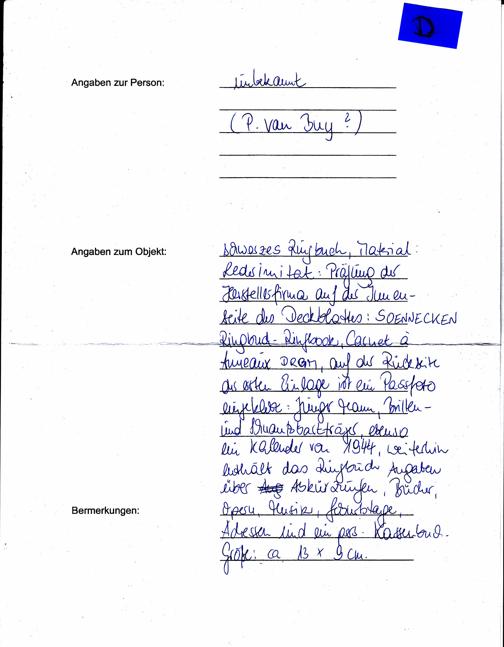 D
Angaben zur Person:
unbekannt
(P. van Buy ?)
Angaben zum Objekt:
schwarzes Ringbuch, Material:
Lederimitat: Prägung der
Herstellerfirma auf der Innen-
seite des Deckblattes: SOENNECKEN
Ringbuch - Ringbook, Carnet à
Anneaux DRGM, auf der Rückseite
der ersten Einlage ist ein Passfoto
eingeklebt: junger Mann, Brillen-
und Schnautzbartträger, ebenso
ein Kalender von 1944, weiterhin
enthält das Ringbuch Angaben
über Abkürzungen, Bücher,
Bermerkungen:
Opern, Musik, Geburtstage,
Adressen und ein pers. Kassenbuch.
Größe: ca 13 x 9 cm.